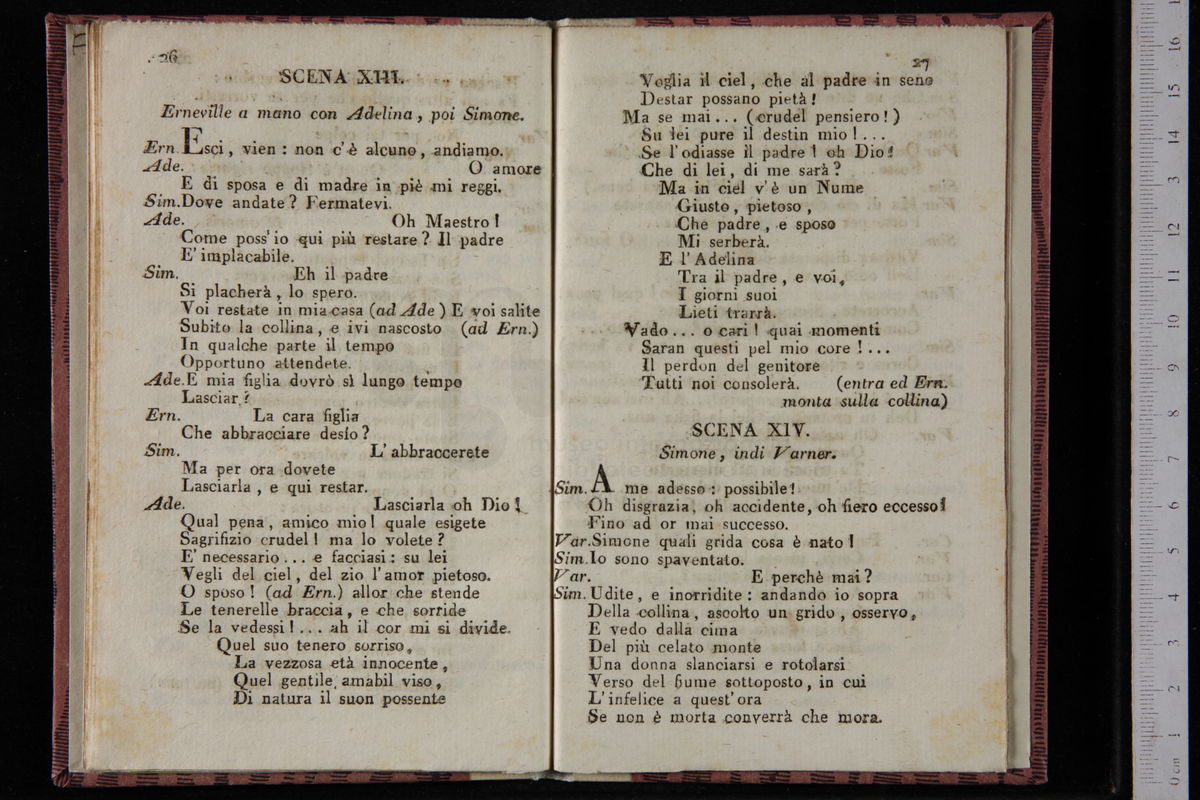 26
SCENA XIII.
Erneville a mano con Adelina, poi Simone.
Ern. Esci, vien: non c'è alcuno, andiamo.
Ade. O amore
E di sposa e di madre in piè mi reggi.
Sim. Dove andate? Fermatevi.
Ade. Oh Maestro!
Come poss' io qui più restare? Il padre
E' implacabile.
Sim. Eh il padre
Si placherà, lo spero.
Voi restate in mia casa (ad Ade) E voi salite
Subito la collina, e ivi nascosto (ad Ern.)
In qualche parte il tempo
Opportuno attendete.
Ade. E mia figlia dovrò sì lungo tempo
Lasciar?
Ern. La cara figlia
Che abbracciare desío?
Sim. L' abbraccerete
Ma per ora dovete
Lasciarla, e qui restar.
Ade. Lasciarla oh Dio!
Qual pena, amico mio! quale esigete
Sagrifizio crudel! ma lo volete?
E' necessario... e facciasi: su lei
Vegli del ciel, del zio l'amor pietoso.
O sposo! (ad Ern.) allor che stende
Le tenerelle braccia, e che sorride
Se la vedessi!... ah il cor mi si divide.
Quel suo tenero sorriso,
La vezzosa età innocente,
Quel gentile amabil viso,
Di natura il suon possente
27
Voglia il ciel, che al padre in seno
Destar possano pietà!
Ma se mai... (crudel pensiero!)
Su lei pure il destin mio!...
Se l'odiasse il padre! oh Dio!
Che di lei, di me sarà?
Ma in ciel v'è un Nume
Giusto, pietoso,
Che padre, e sposo
Mi serberà.
E l'Adelina
Tra il padre, e voi,
I giorni suoi
Lieti trarrà.
Vado... o cari! quai momenti
Saran questi pel mio core!...
Il perdon del genitore
Tutti noi consolerà. (entra ed Ern.
monta sulla collina)
SCENA XIV.
Simone, indi Varner.
Sim. A me adesso: possibile!
Oh disgrazia, oh accidente, oh fiero eccesso!
Fino ad or mai successo.
Var. Simone quali grida cosa è nato!
Sim. Io sono spaventato.
Var. E perchè mai?
Sim. Udite, e inorridite: andando io sopra
Della collina, ascolto un grido, osservo,
E vedo dalla cima
Del più celato monte
Una donna slanciarsi e rotolarsi
Verso del fiume sottoposto, in cui
L'infelice a quest'ora
Se non è morta converrà che mora.
0 cm 1 2 3 4 5 6 7 8 9 10 11 12 13 14 15 16